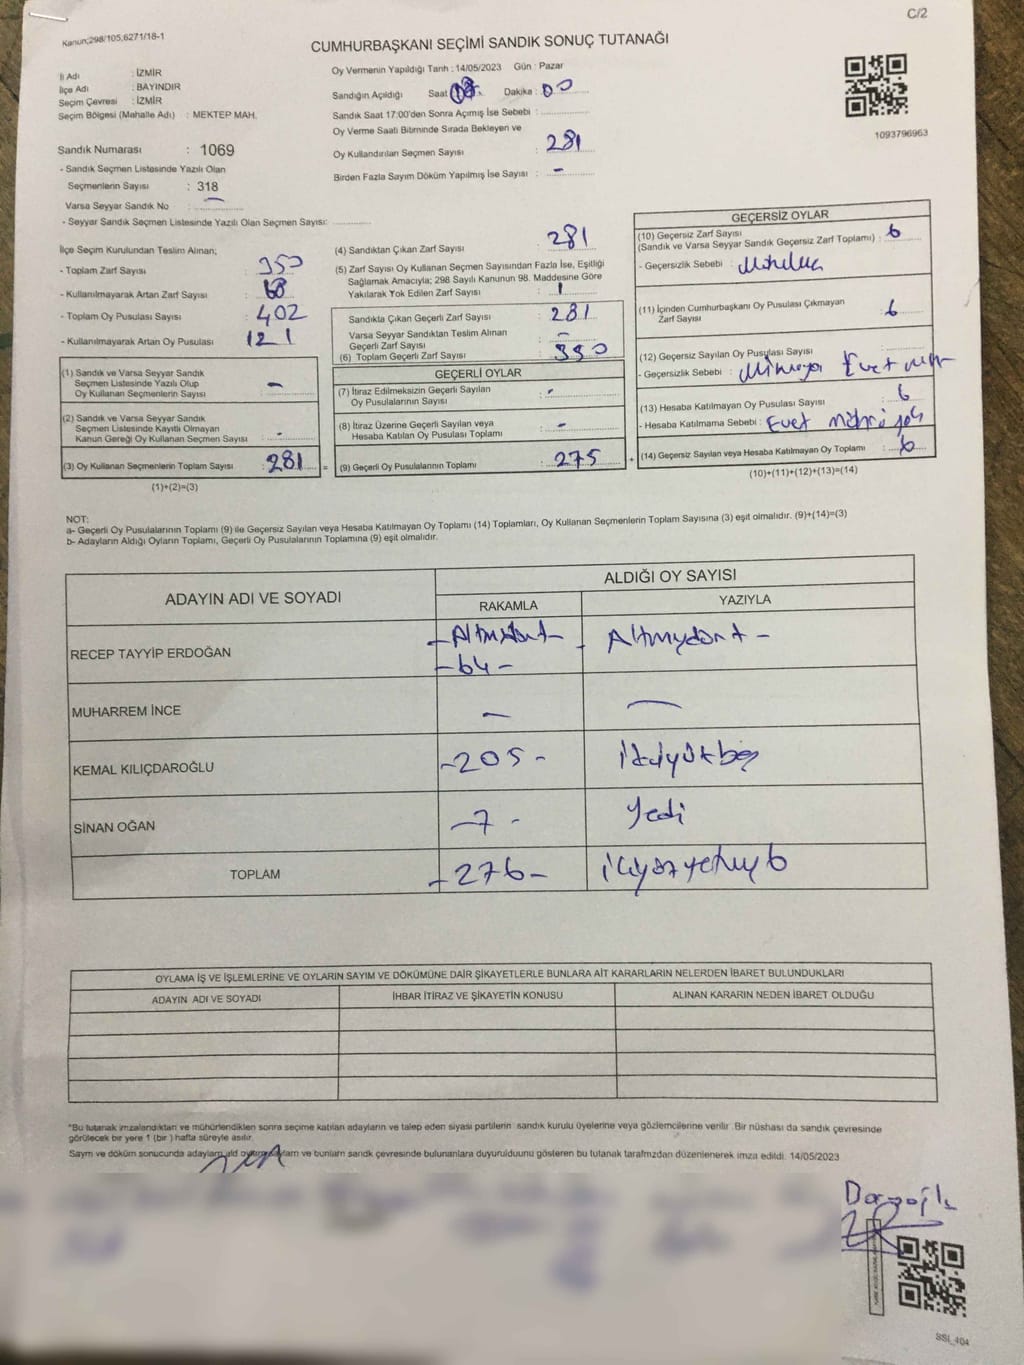 C/2
Kanun;298/105,6271/18-1
CUMHURBAŞKANI SEÇİMİ SANDIK SONUÇ TUTANAĞI
İl Adı : İZMİR
İlçe Adı : BAYINDIR
Seçim Çevresi : İZMİR
Seçim Bölgesi (Mahalle Adı) : MEKTEP MAH.
Sandık Numarası : 1069
- Sandık Seçmen Listesinde Yazılı Olan
Seçmenlerin Sayısı : 318
Varsa Seyyar Sandık No : —
- Seyyar Sandık Seçmen Listesinde Yazılı Olan Seçmen Sayısı:
Oy Vermenin Yapıldığı Tarih : 14/05/2023 Gün : Pazar
Sandığın Açıldığı Saat Dakika : 00
Sandık Saat 17:00'den Sonra Açımış İse Sebebi :
Oy Verme Saati Bitiminde Sırada Bekleyen ve
Oy Kullandırılan Seçmen Sayısı : 281
Birden Fazla Sayım Döküm Yapılmış İse Sayısı : -
1093796963
İlçe Seçim Kurulundan Teslim Alınan;
- Toplam Zarf Sayısı 350
- Kullanılmayarak Artan Zarf Sayısı 68
- Toplam Oy Pusulası Sayısı : 402
- Kullanılmayarak Artan Oy Pusulası 121
(1) Sandık ve Varsa Seyyar Sandık
Seçmen Listesinde Yazılı Olup
Oy Kullanan Seçmenlerin Sayısı : -
(2) Sandık ve Varsa Seyyar Sandık
Seçmen Listesinde Kayıtlı Olmayan
Kanun Gereği Oy Kullanan Seçmen Sayısı : -
(3) Oy Kullanan Seçmenlerin Toplam Sayısı : 281
(1)+(2)=(3)
(4) Sandıktan Çıkan Zarf Sayısı : 281
(5) Zarf Sayısı Oy Kullanan Seçmen Sayısından Fazla İse, Eşitliği
Sağlamak Amacıyla; 298 Sayılı Kanunun 98. Maddesine Göre
Yakılarak Yok Edilen Zarf Sayısı : 1
Sandıkta Çıkan Geçerli Zarf Sayısı : 281
Varsa Seyyar Sandıktan Teslim Alınan
Geçerli Zarf Sayısı : -
(6) Toplam Geçerli Zarf Sayısı : 350
GEÇERLİ OYLAR
(7) İtiraz Edilmeksizin Geçerli Sayılan
Oy Pusulalarının Sayısı : -
(8) İtiraz Üzerine Geçerli Sayılan veya
Hesaba Katılan Oy Pusulası Toplamı : -
= (9) Geçerli Oy Pusulalarının Toplamı : 275 +
GEÇERSİZ OYLAR
(10) Geçersiz Zarf Sayısı
(Sandık ve Varsa Seyyar Sandık Geçersiz Zarf Toplamı) : 6
- Geçersizlik Sebebi :
(11) İçinden Cumhurbaşkanı Oy Pusulası Çıkmayan
Zarf Sayısı : 6
(12) Geçersiz Sayılan Oy Pusulası Sayısı :
- Geçersizlik Sebebi : Evet
(13) Hesaba Katılmayan Oy Pusulası Sayısı : 6
- Hesaba Katılmama Sebebi : Evet
(14) Geçersiz Sayılan veya Hesaba Katılmayan Oy Toplamı : 6
(10)+(11)+(12)+(13)=(14)
NOT:
a- Geçerli Oy Pusulalarının Toplamı (9) ile Geçersiz Sayılan veya Hesaba Katılmayan Oy Toplamı (14) Toplamları, Oy Kullanan Seçmenlerin Toplam Sayısına (3) eşit olmalıdır. (9)+(14)=(3)
b- Adayların Aldığı Oyların Toplamı, Geçerli Oy Pusulalarının Toplamına (9) eşit olmalıdır.
ADAYIN ADI VE SOYADI
ALDIĞI OY SAYISI
RAKAMLA YAZIYLA
RECEP TAYYİP ERDOĞAN -Altmışdört- -64- Altmışdört -
MUHARREM İNCE — —
KEMAL KILIÇDAROĞLU -205- ikiyüzbeş
SİNAN OĞAN -7- Yedi
TOPLAM -276-
OYLAMA İŞ VE İŞLEMLERİNE VE OYLARIN SAYIM VE DÖKÜMÜNE DAİR ŞİKAYETLERLE BUNLARA AİT KARARLARIN NELERDEN İBARET BULUNDUKLARI
ADAYIN ADI VE SOYADI İHBAR İTİRAZ VE ŞİKAYETİN KONUSU ALINAN KARARIN NEDEN İBARET OLDUĞU
*Bu tutanak imzalandıktan ve mühürlendikten sonra seçime katılan adayların ve talep eden siyasi partilerin sandık kurulu üyelerine veya gözlemcilerine verilir .Bir nüshası da sandık çevresinde
görülecek bir yere 1 (bir ) hafta süreyle asılır.
Sayım ve döküm sonucunda adayların ald oyların ve bunlarn sandk çevresinde bulunanlara duyurulduunu gösteren bu tutanak tarafmzdan düzenlenerek imza edildi. 14/05/2023
SSI_404